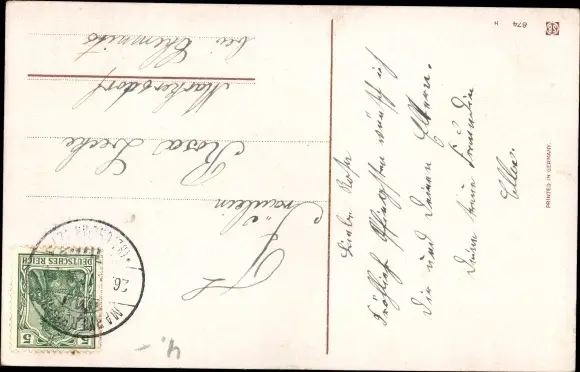 Liebe Rosa
Fröhliche Pfingsten wünscht ich
Dir und Deinen Eltern.
Deine Freundin
Ella.
Fräulein
Rosa
Markersdorf
bei Chemnitz
DEUTSCHES REICH
5 5
26.
PRINTED IN GERMANY.
874
H
4.-